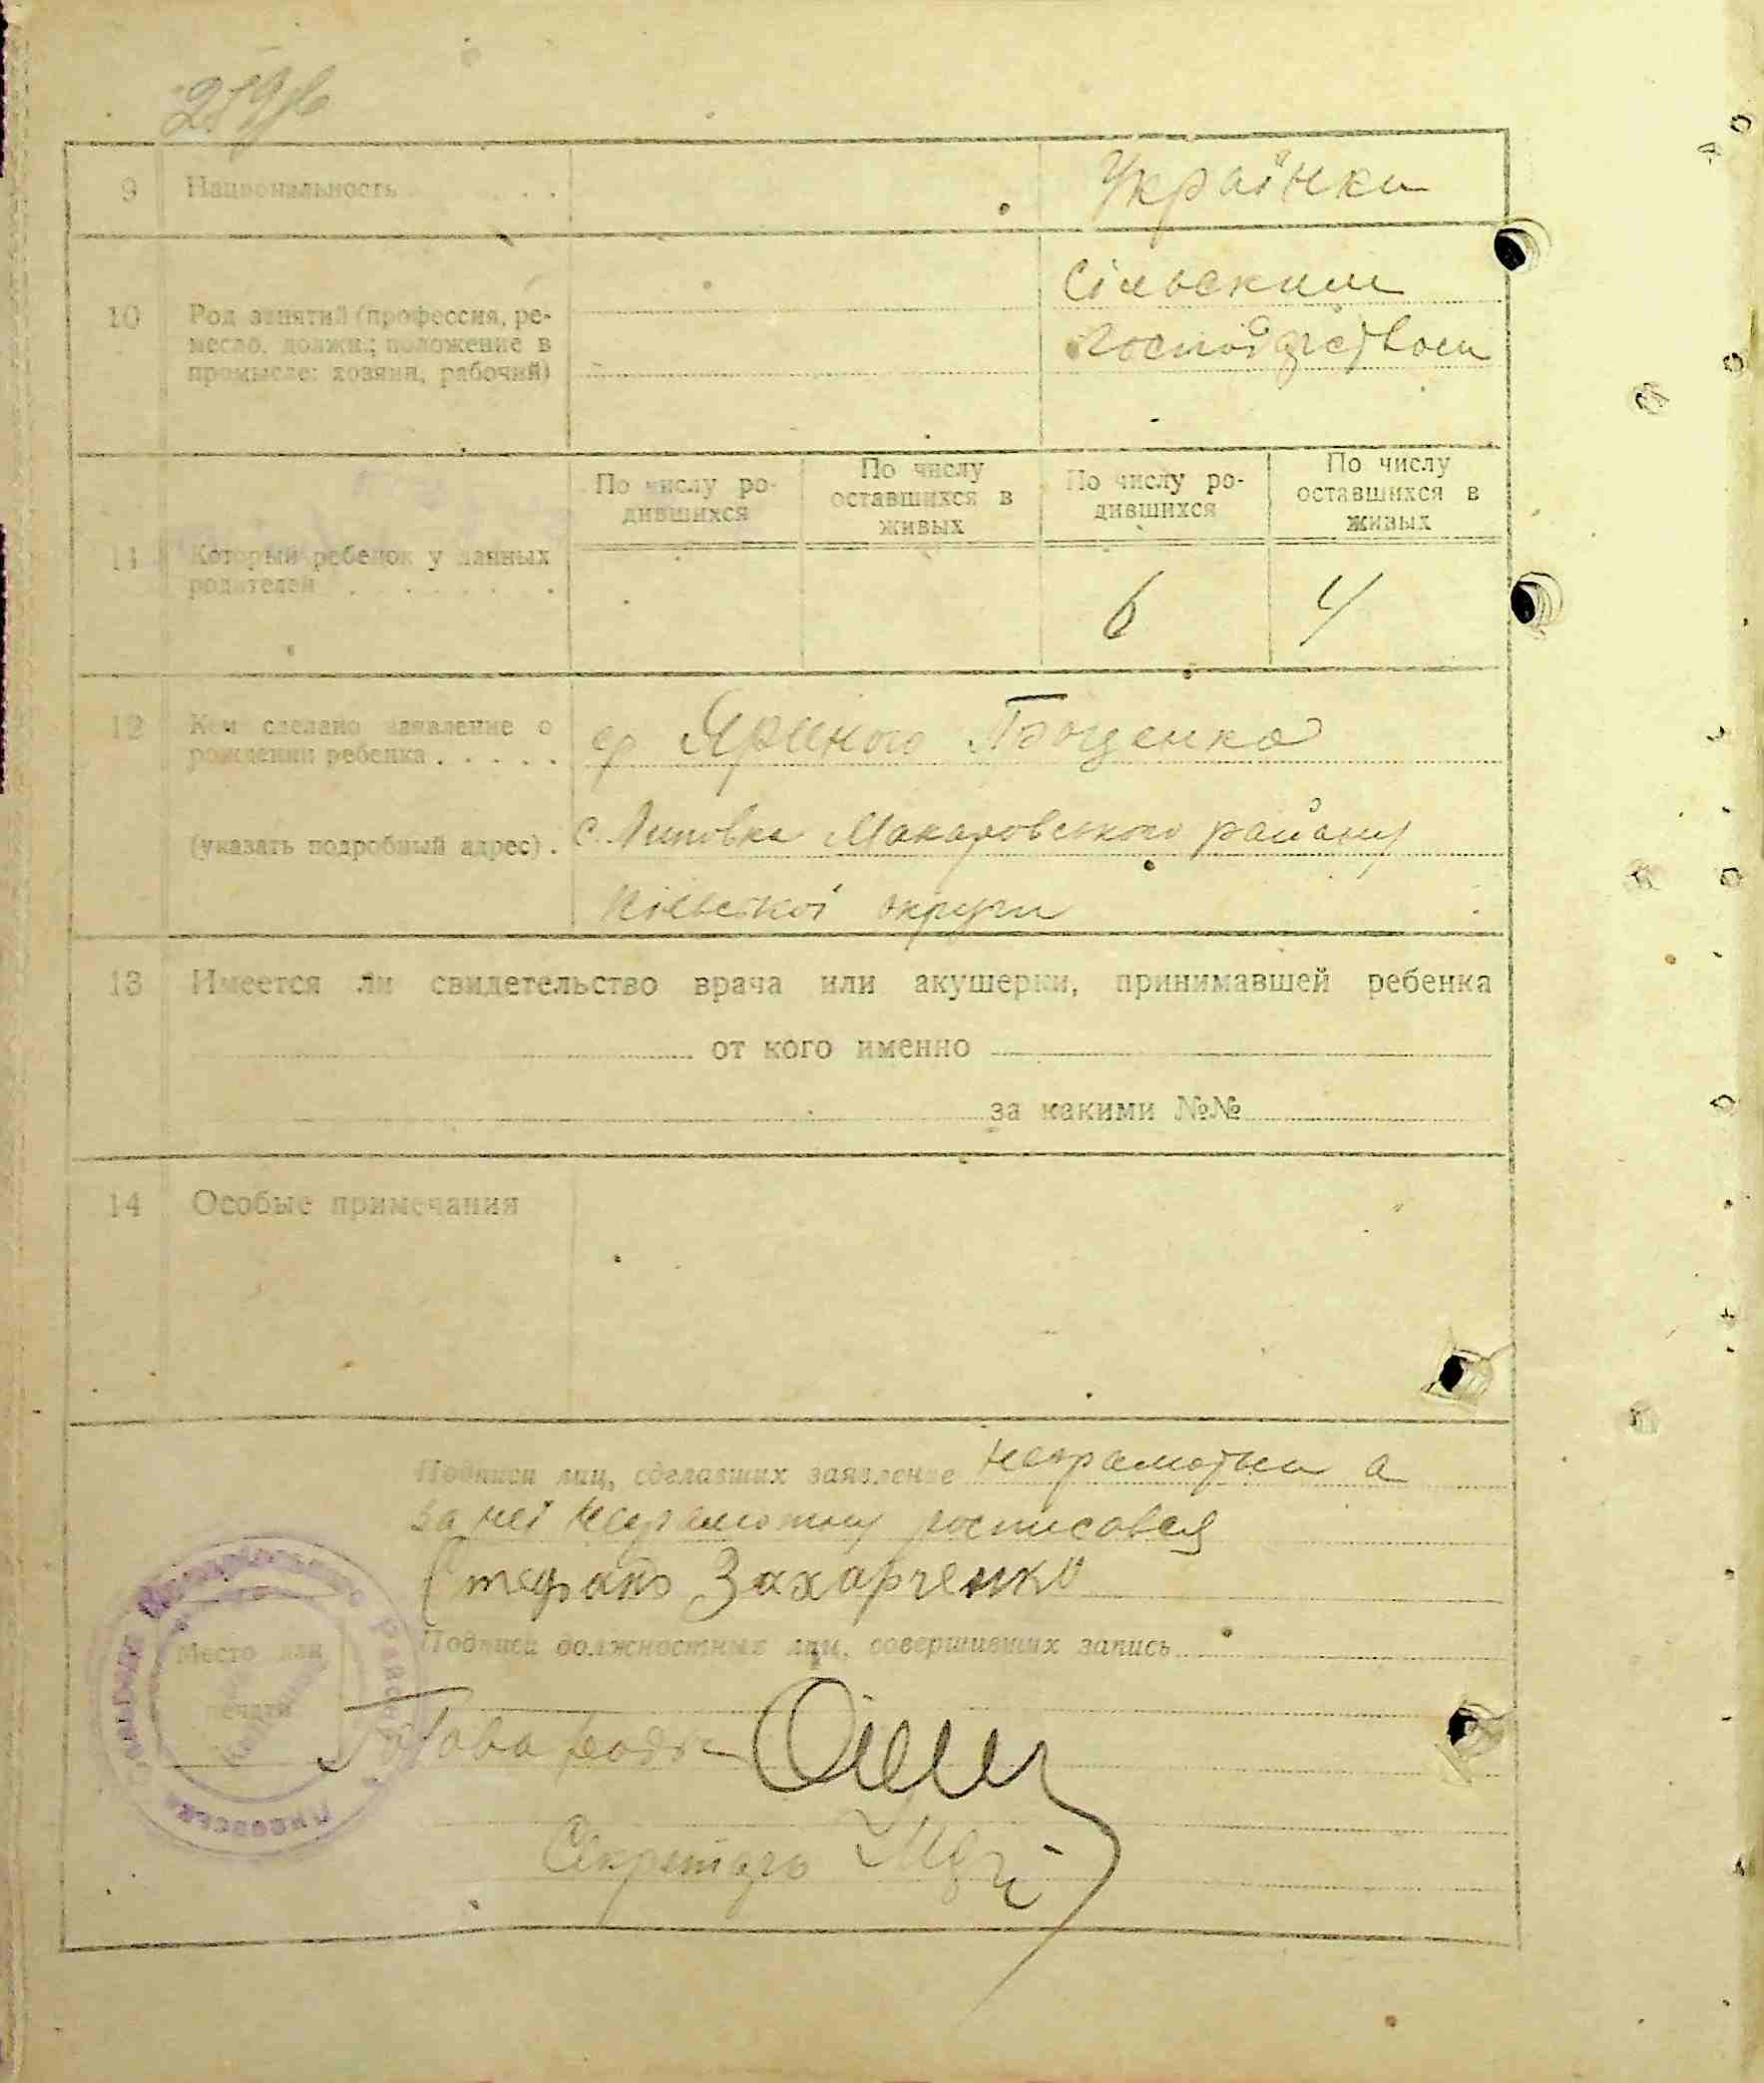 9 Национальность . . . Українка
10 Род занятий (профессия, ре-
месло, должн.; положение в
промысле: хозяин, рабочий)
Сільским
господарством
11 Который ребенок у данных
родителей . . . . . . .
По числу ро-
дившихся
По числу
оставшихся в
живых
По числу ро-
дившихся
По числу
оставшихся в
живых
6 4
12 Кем сделано заявление о
рождении ребенка . . . . .
гр Яриною
(указать подробный адрес) .
с. Липовка Макаровського району
Київської округи
13 Имеется ли свидетельство врача или акушерки, принимавшей ребенка
от кого именно
за какими №№
14 Особые примечания
Подписи лиц, сделавших заявление неграмотна а
за неї неграмотну росписався
Стефанъ Захарченко
Место для
печати
Подписи должностных лиц, совершивших запись
Голова
Секретарь